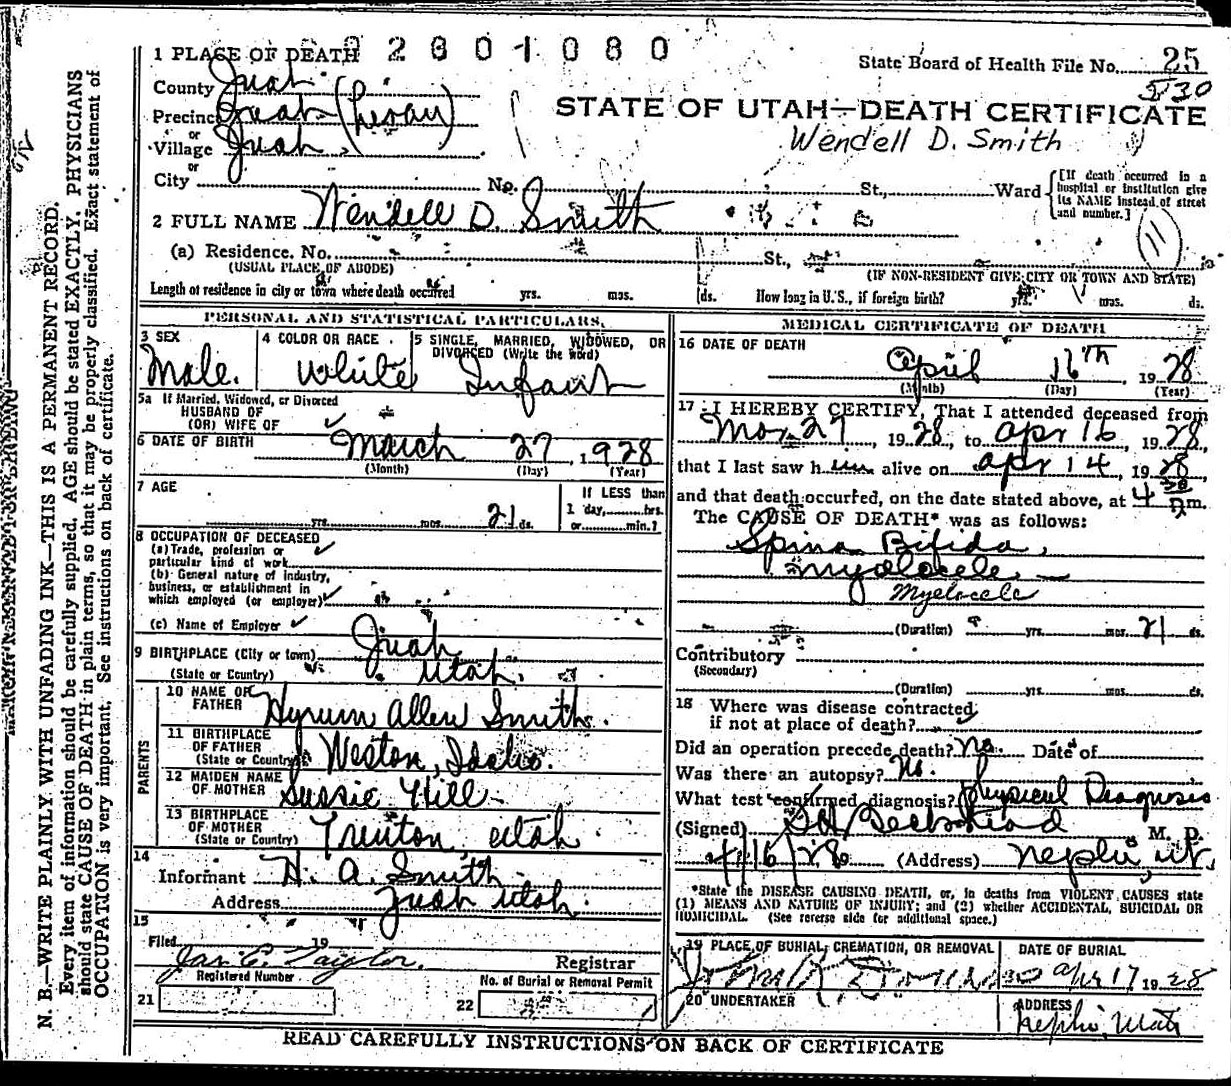 1 PLACE OF DEATH 02801080
State Board of Health File No. 25
530
County Juab
Precinct Juab (Levan)
or
Village Juab
or
STATE OF UTAH—DEATH CERTIFICATE
Wendell D. Smith
City No. St., Ward
[If death occurred in a hospital or institution give its NAME instead of street and number.]
2 FULL NAME Wendell D. Smith
11
(a) Residence. No. St.,
(USUAL PLACE OF ABODE) (IF NON-RESIDENT GIVE CITY OR TOWN AND STATE)
Length of residence in city or town where death occurred yrs. mos. ds. How long in U.S., if foreign birth? yrs. mos. ds.
PERSONAL AND STATISTICAL PARTICULARS.
3 SEX
Male.
4 COLOR OR RACE
White
5 SINGLE, MARRIED, WIDOWED, OR
DIVORCED (Write the word)
Infant
5a If Married, Widowed, or Divorced
HUSBAND OF
(OR) WIFE OF
6 DATE OF BIRTH March 27 1928
(Month) (Day) (Year)
7 AGE
yrs. mos. 21 ds.
If LESS than
1 day, hrs.
or min.?
8 OCCUPATION OF DECEASED
(a) Trade, profession or
particular kind of work
(b) General nature of industry,
business, or establishment in
which employed (or employer)
(c) Name of Employer
9 BIRTHPLACE (City or town) Juab
(State or Country) Utah.
PARENTS
10 NAME OF
FATHER Hyrum Allen Smith.
11 BIRTHPLACE
OF FATHER
(State or Country) Weston, Idaho.
12 MAIDEN NAME
OF MOTHER Sussie Hill
13 BIRTHPLACE
OF MOTHER
(State or Country) Trenton, Utah
14
Informant H. A. Smith
Address Juab Utah.
15
Filed 19
Jas. C. Taylor. Registrar
Registered Number
No. of Burial or Removal Permit
21
22
MEDICAL CERTIFICATE OF DEATH
16 DATE OF DEATH
April 16th, 1928
(Month) (Day) (Year)
17 I HEREBY CERTIFY, That I attended deceased from
Mar 27, 1928, to Apr 16, 1928,
that I last saw him alive on Apr 14, 1928,
and that death occurred, on the date stated above, at 4 30 P m.
The CAUSE OF DEATH* was as follows:
Spina Bifida,
myolocele
Myelocele
(Duration) yrs. mos. 21 ds.
Contributory
(Secondary)
(Duration) yrs. mos. ds.
18 Where was disease contracted
if not at place of death?
Did an operation precede death? No. Date of
Was there an autopsy? No.
What test confirmed diagnosis? Physical Diagnosis
(Signed) M. D.
4/16/28 (Address) Nephi, Ut.
*State the DISEASE CAUSING DEATH, or, in deaths from VIOLENT CAUSES state
(1) MEANS AND NATURE OF INJURY; and (2) whether ACCIDENTAL, SUICIDAL OR
HOMICIDAL. (See reverse side for additional space.)
19 PLACE OF BURIAL, CREMATION, OR REMOVAL
DATE OF BURIAL
Apr 17 1928
20 UNDERTAKER
ADDRESS
Nephi Utah
READ CAREFULLY INSTRUCTIONS ON BACK OF CERTIFICATE
MARGIN RESERVED FOR BINDING
N. B.—WRITE PLAINLY WITH UNFADING INK—THIS IS A PERMANENT RECORD.
Every item of information should be carefully supplied. AGE should be stated EXACTLY. PHYSICIANS
should state CAUSE OF DEATH in plain terms, so that it may be properly classified. Exact statement of
OCCUPATION is very important. See instructions on back of certificate.